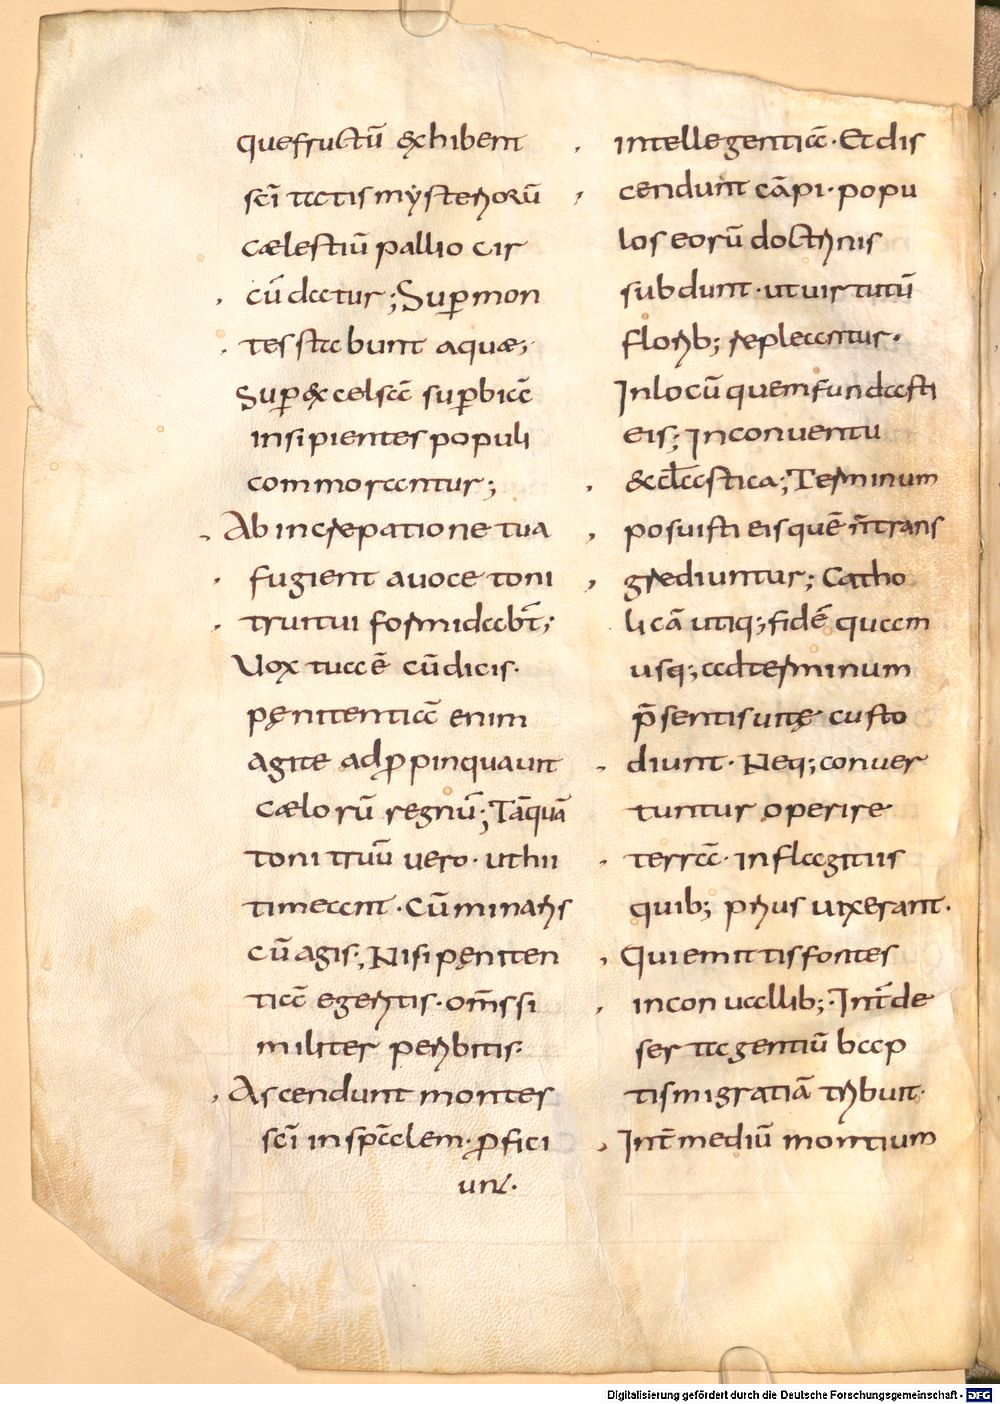 quefructū exhibent
scī tactis mysteriorū
cælestiū pallio cir
cūdatur; Supermon
tes stabunt aquæ;
Super excelsa superbia
insipientes populi
commorantur;
Ab increpatione tua
fugient a uoce toni
trui tui formidabt̄;
Uox tua ē cūdicis·
pęnitentiā enim
agite adpropinquauit
cælorū regnū; Tāquā
tonitruū uero· ut hii
timeant· Cū minaris
cū agis; Nisi pęniten
tiā egeritis· oms̄ si
militer peribitis·
Ascendunt montes
scī in spc̄clem· profici
unt·
intellegentiā· Et dis
cendunt cāpi· popu
los eorū doctrinis
subdunt· ut uirtutū
florib; repleantur·
In locū quem fundasti
eis; In conuentu
&cl̄astica; Terminum
posuisti eis quē n̄ trans
grediuntur; Catho
licā utiq; fidē quam
usq; ad terminum
p̄sentis uitę custo
diunt· Neq; conuer
tuntur operire
terrā· in flagitiis
quib; prius uixerant·
Qui emittis fontes
in conuallib; Int̄ de
serta gentiū bap
tismi gratiā tribuit·
Int̄ mediū montium
Digitalisierung gefördert durch die Deutsche Forschungsgemeinschaft - DFG